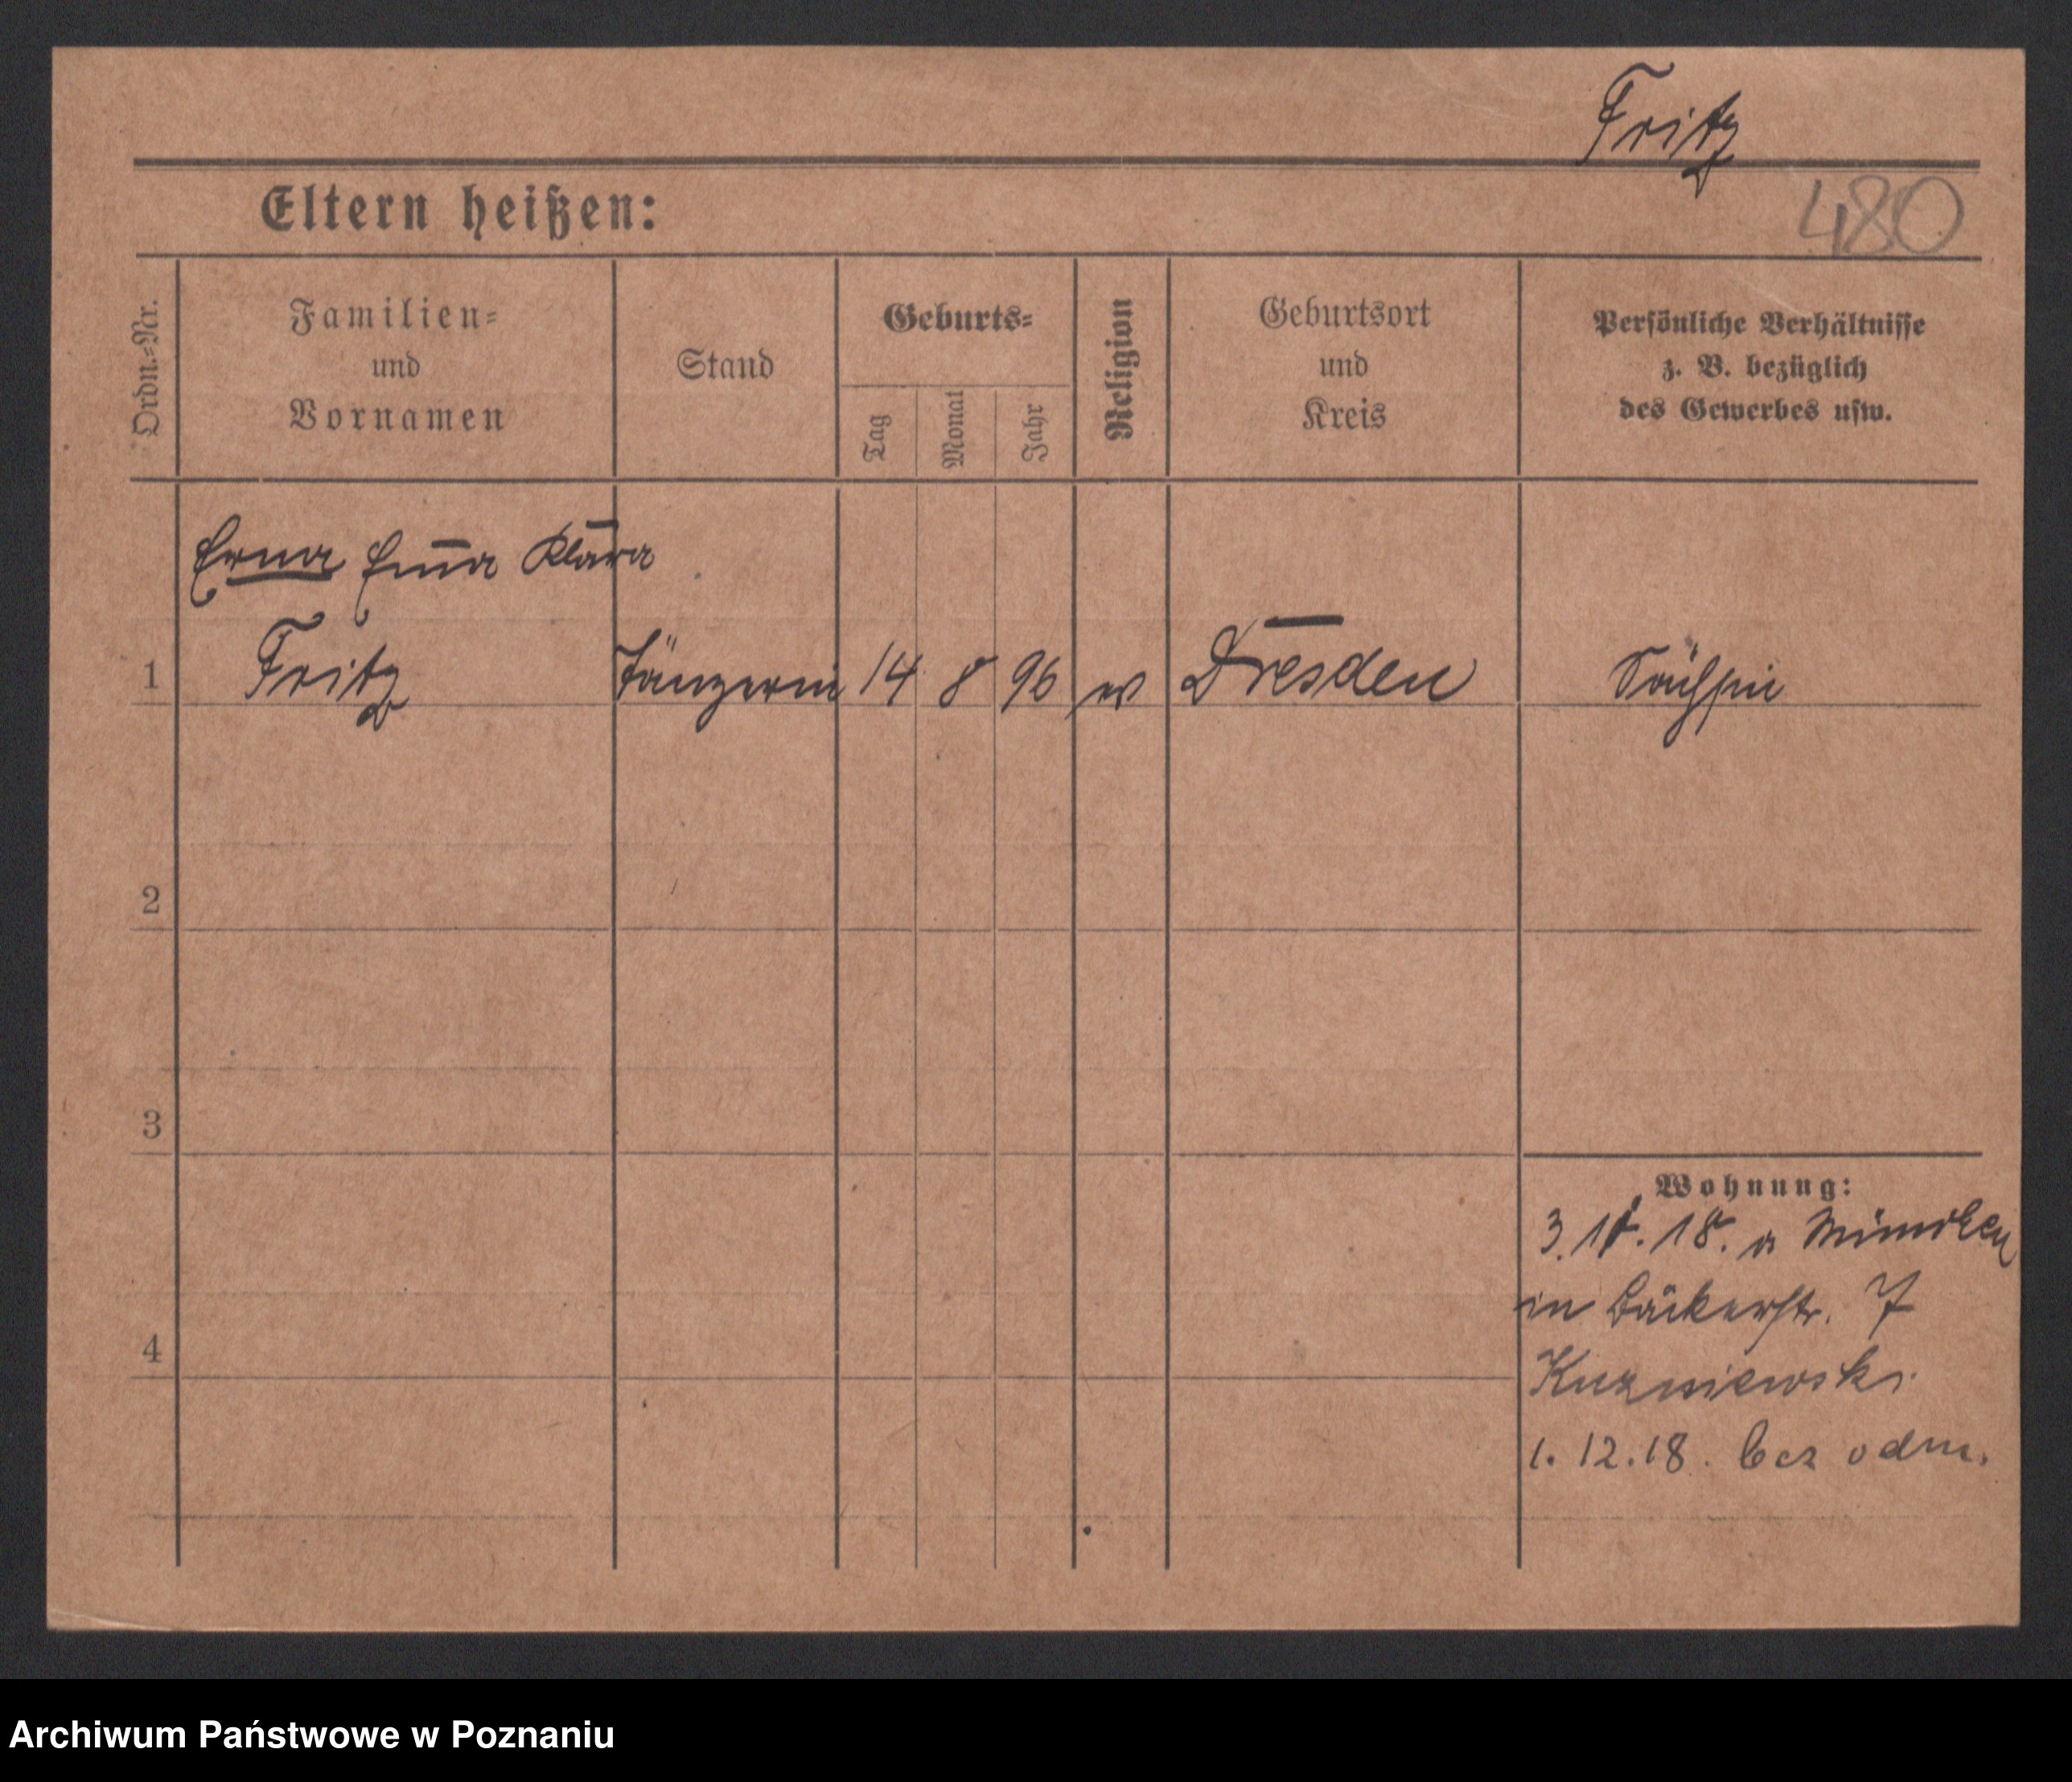 Fritz
480
Eltern heißen:
Ordn.-Nr.
Familien-
und
Vornamen
Stand
Geburts-
Tag
Monat
Jahr
Religion
Geburtsort
und
Kreis
Persönliche Verhältnisse
z. B. bezüglich
des Gewerbes usw.
Erna Em̄a Klara
1 Fritz Tänzerin 14 8 96 ev Dresden Sächsin
2
3
Wohnung:
3. 11. 18. a München
in Bäckerstr. 7
4
Kuzniewski
1. 12. 18. bez odm.
Archiwum Państwowe w Poznaniu